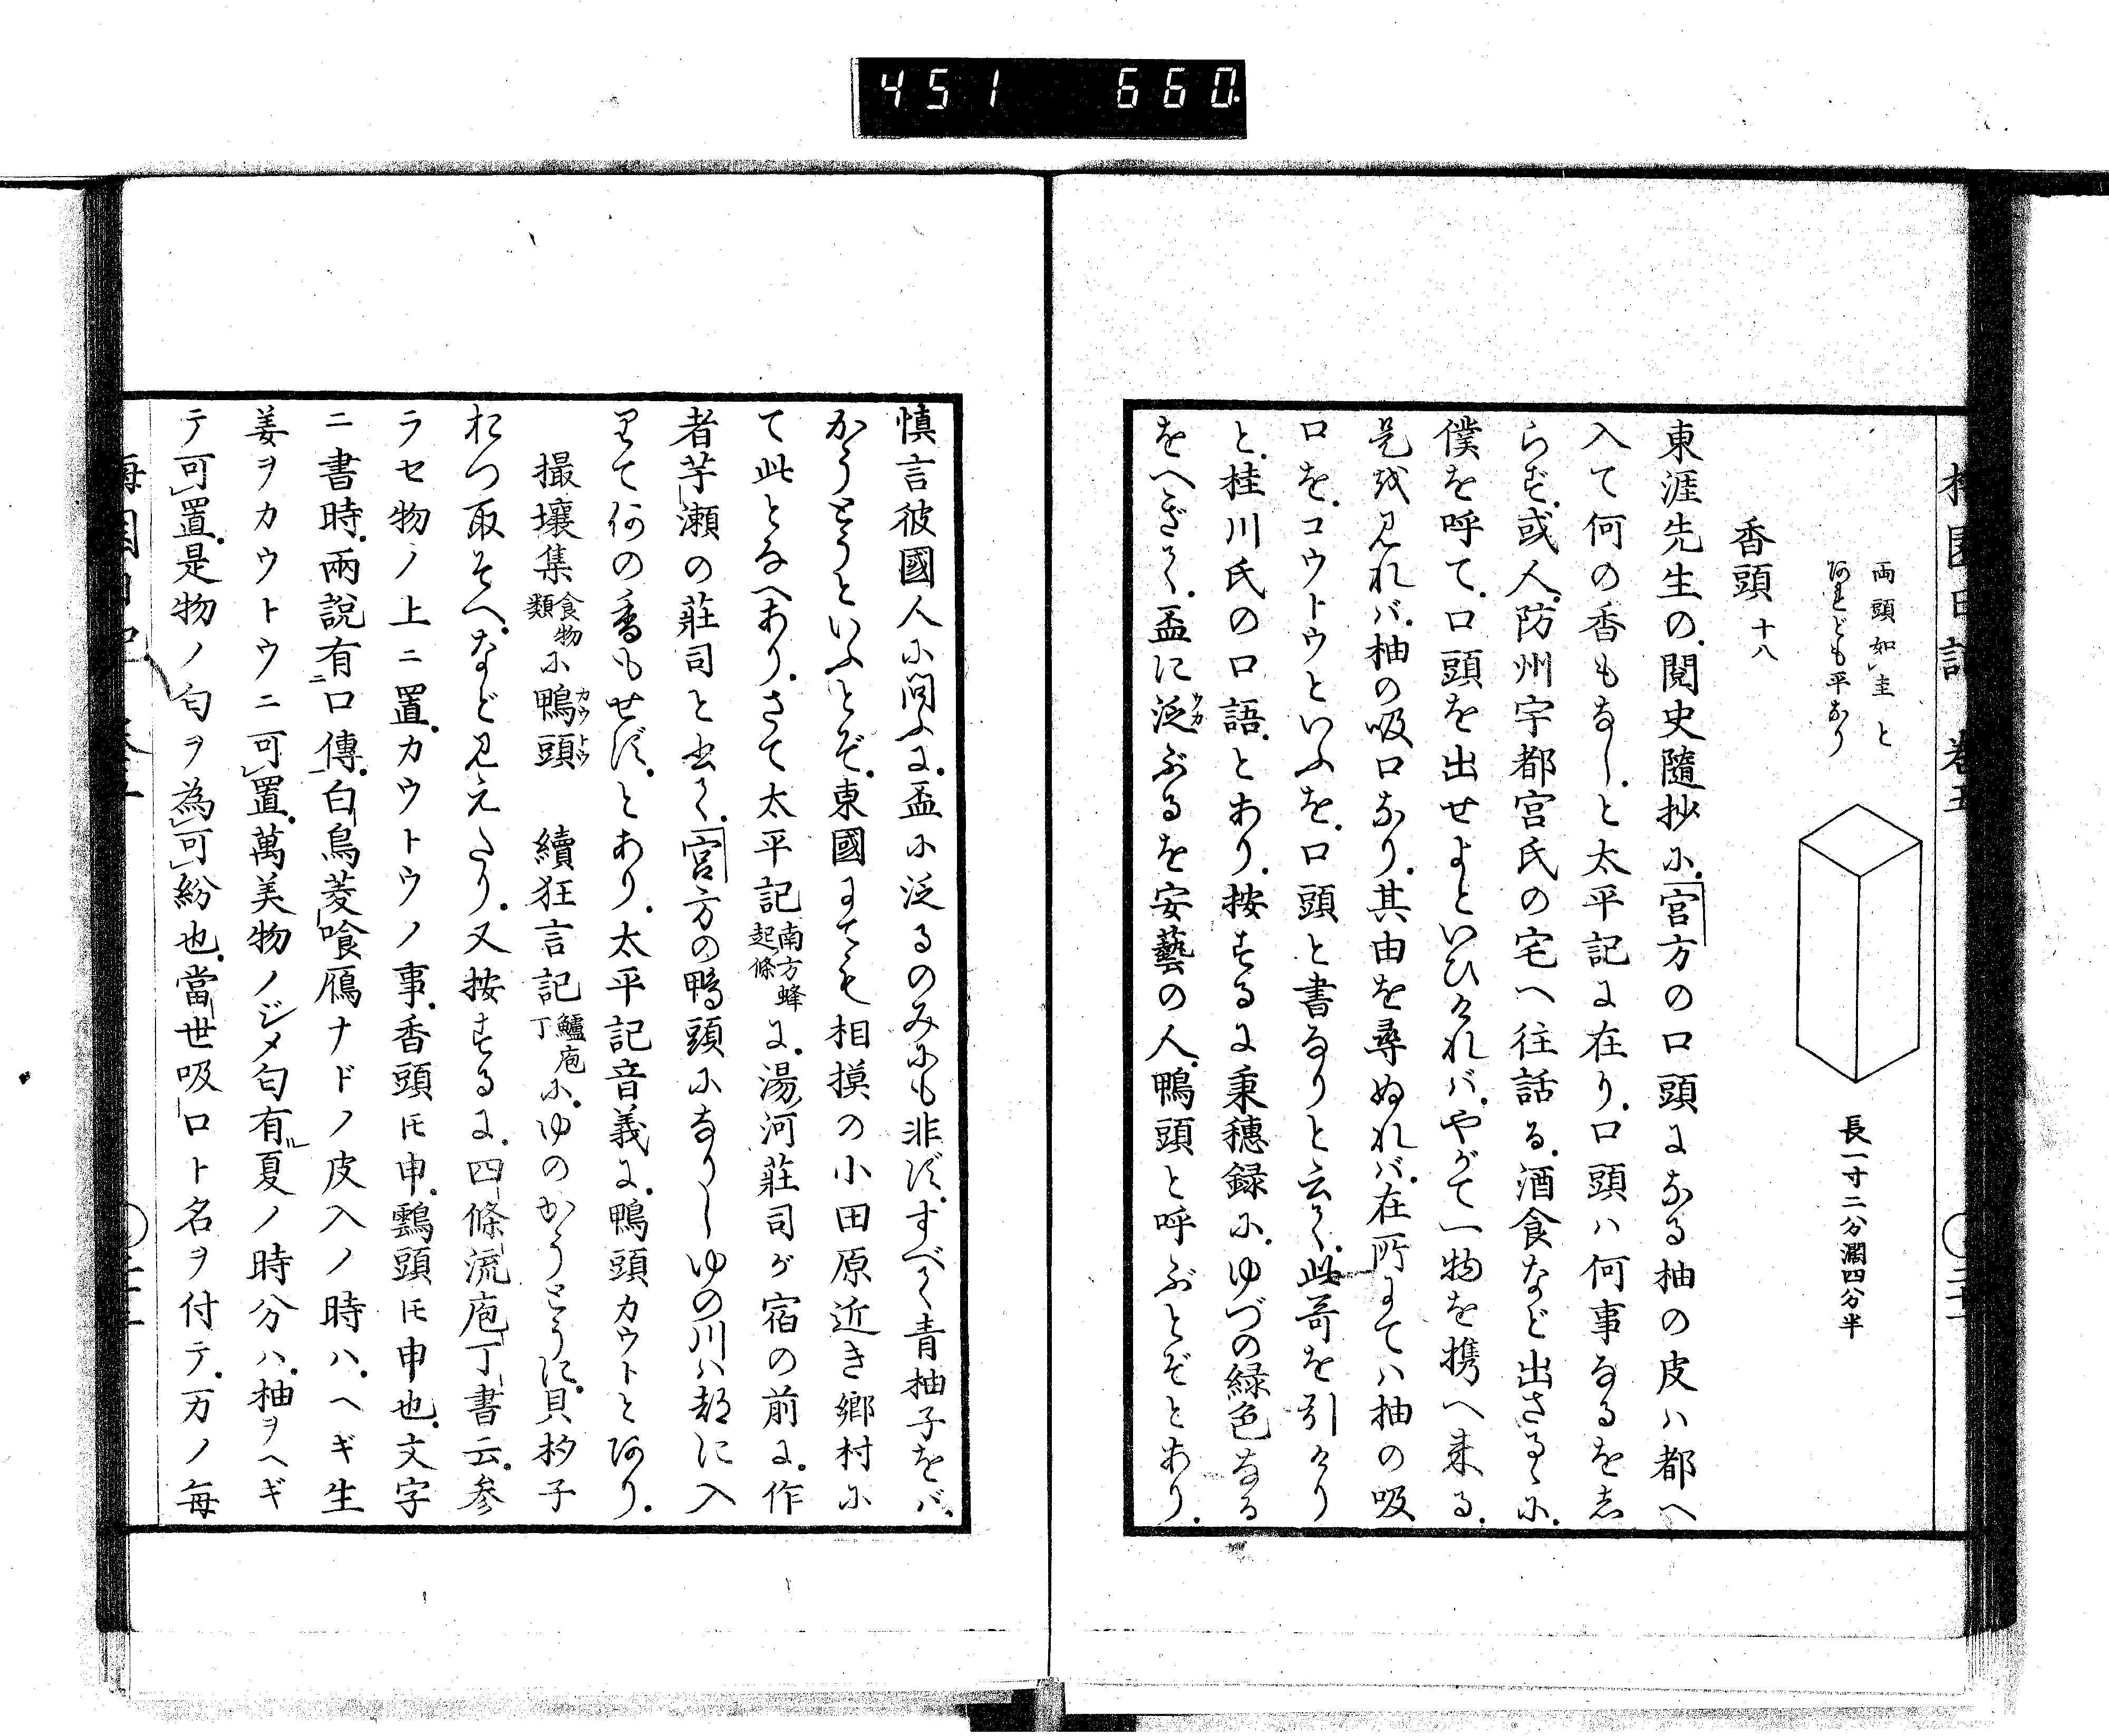 451 660.
梅園日記 卷五
兩頭如圭と
あれども平なり
長一寸二分濶四分半
香頭 十八
東涯先生の閲史隨抄に宮方の口頭になる柚の皮ハ都へ
入て何の香もなしと太平記に在り口頭ハ何事なるをし
らず或人防州宇都宮氏の宅へ往話る酒食など出さるゝに
僕を呼て口頭を出せよといひけれバやがて一物を携へ来る
是を見れバ柚の吸口なり其由を尋ぬれバ在所にてハ柚の吸
口をコウトウといふを口頭と書るなりと云く此哥を引けり
と桂川氏の口語とあり按ずるに秉穗録にゆづの緑色なる
をへぎく盃に泛ぶるを安藝の人鴨頭と呼ぶとぞとあり
ウカ
慎言彼國人に問ふに盃に泛るのみにも非ずすべて青柚子をバ
かうとうといふとぞ東國にても相摸の小田原近き郷村に
て此となへありさて太平記南方蜂起條に湯河莊司が宿の前に作
者芋瀬の莊司と出て宮方の鴨頭になりしゆの川ハ都に入
りて何の香もせずとあり太平記音義に鴨頭カウトとあり
撮壤集食物類に鴨頭 續狂言記鱸庖丁にゆのかうとうに貝杓子
カウトウ
おつ取そへなど見えたり又按ずるに四條流庖丁書云参
ラセ物ノ上ニ置カウトウノ事香頭氏申鷄頭氏申也文字
ニ書時兩説有口傳白鳥菱喰鴈ナドノ皮入ノ時ハヘギ生
姜ヲカウトウニ可置萬美物ノジメ匂有夏ノ時分ハ柚ヲヘギ
テ可置是物ノ匂ヲ為可紛也當世吸口ト名ヲ付テ万ノ毎